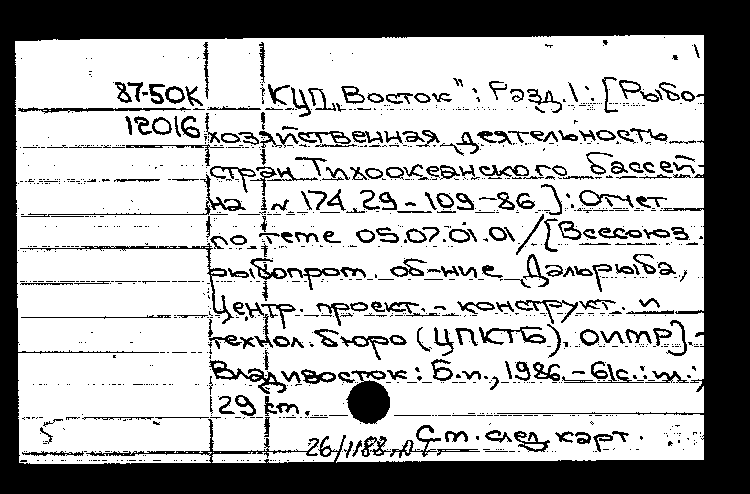 87-50К КЦП „Восток": Разд.1: [Рыбо-
12016 хозяйственная деятельность
стран Тихоокеанского бассей-
на № 174.29-109-86]: Отчет
по теме 05.07.01.01/[Всесоюз.
рыбопром. об-ние Дальрыба,
Центр. проект.-конструкт. и
технол. бюро (ЦПКТБ), ОИМР].-
Владивосток: Б.и., 1986.-61с.: ил.;
29 см.
См. след. карт.